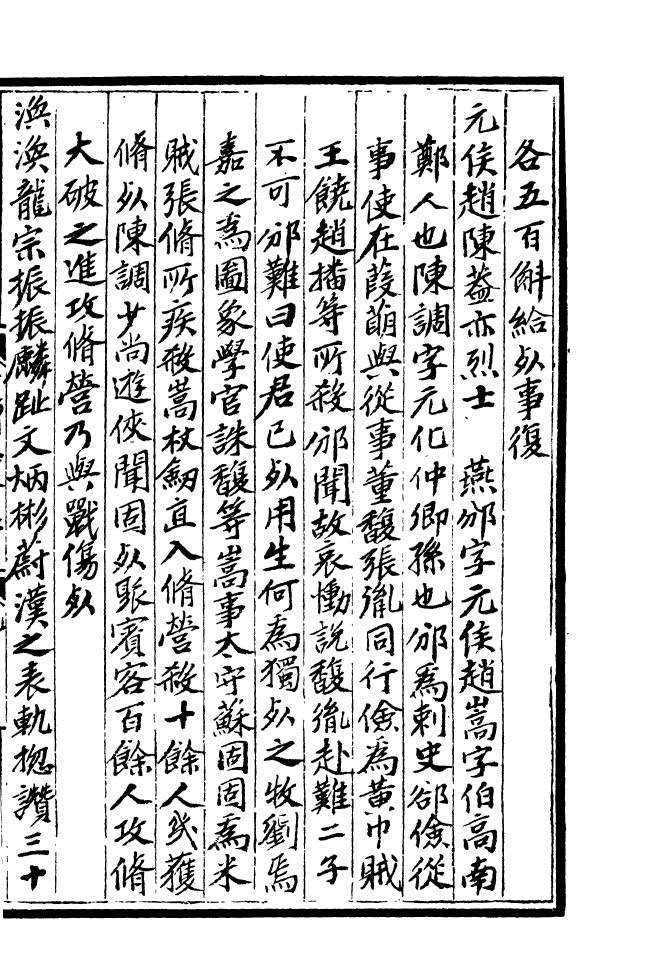 各五百斛給死事復
元侯趙陳蓋亦烈士　燕邠字元侯趙嵩字伯高南
鄭人也陳調字元化仲卿孫也邠為刺史郤儉從
事使在葭萌與從事董馥張胤同行儉為黃巾賊
王饒趙播等所殺邠聞故哀慟說馥胤赴難二子
不可邠難曰使君已死用生何為獨死之牧劉焉
嘉之為圖象學官誅馥等嵩事太守蘇固固為米
賊張脩所疾殺嵩杖劒直入脩營殺十餘人㡬獲
脩死陳調少尚遊俠聞固死聚賓客百餘人攻脩
大破之進攻脩營乃與戰傷死
渙渙龍宗振振麟趾文炳彬蔚漢之表軌揔讚三十